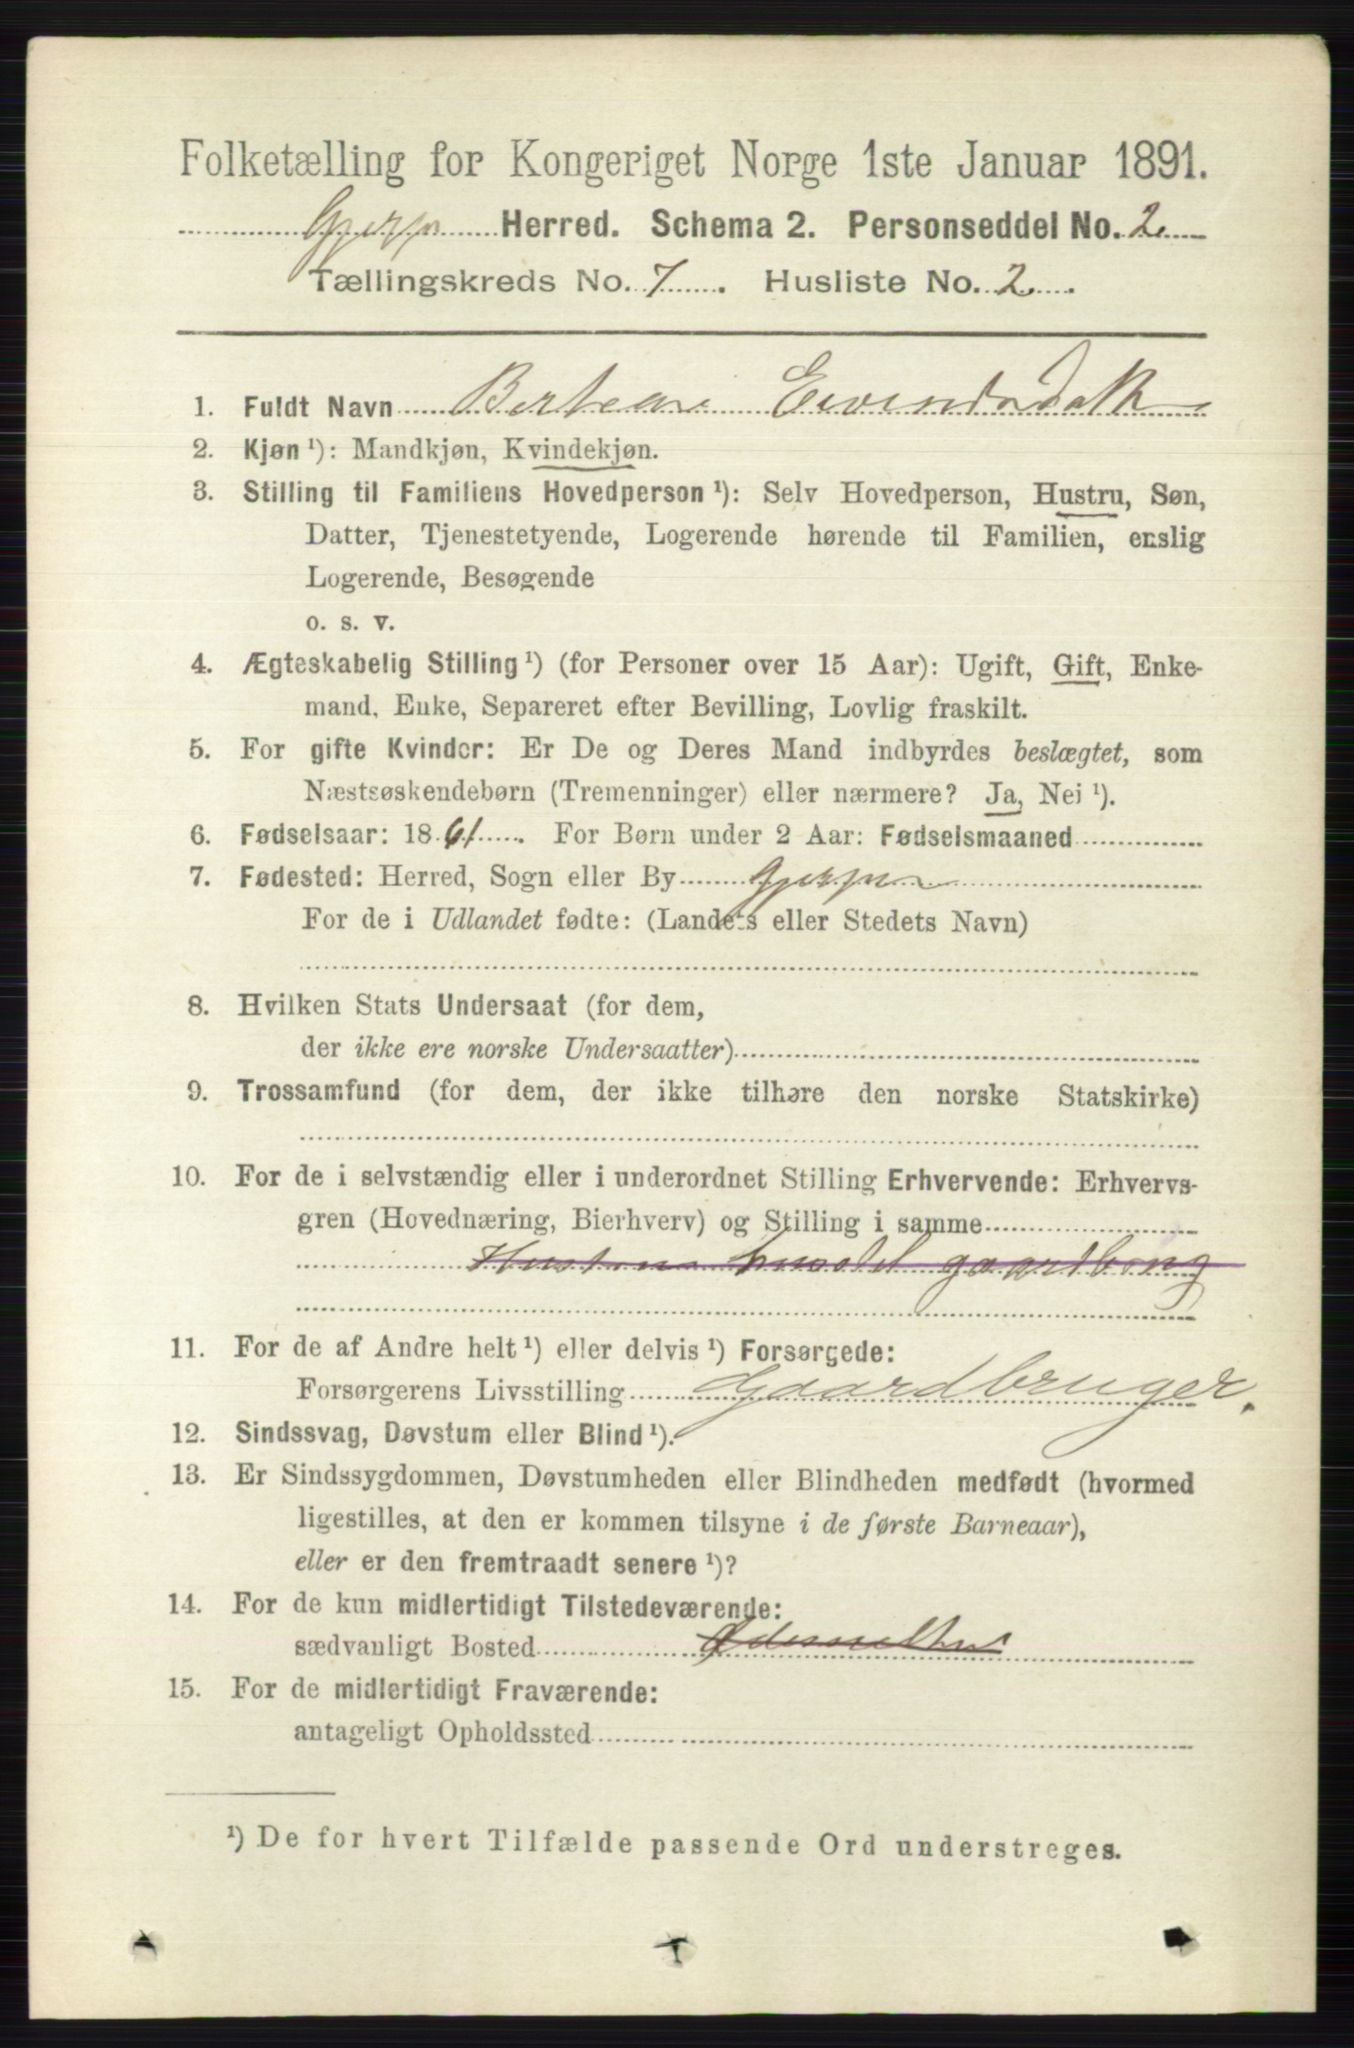 Folketælling for Kongeriget Norge 1ste Januar 1891.
Gjerpen Herred. Schema 2. Personseddel No. 2
Tællingskreds No. 7. Husliste No. 2.
1. Fuldt Navn Berthea Eivindsdatter
2. Kjøn ¹): Mandkjøn, Kvindekjøn.
3. Stilling til Familiens Hovedperson ¹): Selv Hovedperson, Hustru, Søn,
Datter, Tjenestetyende, Logerende hørende til Familien, enslig
Logerende, Besøgende
o. s. v.
4. Ægteskabelig Stilling ¹) (for Personer over 15 Aar): Ugift, Gift, Enke-
mand, Enke, Separeret efter Bevilling, Lovlig fraskilt.
5. For gifte Kvinder: Er De og Deres Mand indbyrdes beslægtet, som
Næstsøskendebørn (Tremenninger) eller nærmere? Ja, Nei ¹).
6. Fødselsaar: 1861. For Børn under 2 Aar: Fødselsmaaned
7. Fødested: Herred, Sogn eller By Gjerpen
For de i Udlandet fødte: (Landets eller Stedets Navn)
8. Hvilken Stats Undersaat (for dem,
der ikke ere norske Undersaatter)
9. Trossamfund (for dem, der ikke tilhøre den norske Statskirke)
10. For de i selvstændig eller i underordnet Stilling Erhvervende: Erhvervs-
gren (Hovednæring, Bierhverv) og Stilling i samme
11. For de af Andre helt ¹) eller delvis ¹) Forsørgede:
Forsørgerens Livsstilling Gaardbruger.
12. Sindssvag, Døvstum eller Blind ¹).
13. Er Sindssygdommen, Døvstumheden eller Blindheden medfødt (hvormed
ligestilles, at den er kommen tilsyne i de første Barneaar),
eller er den fremtraadt senere ¹)?
14. For de kun midlertidigt Tilstedeværende:
sædvanligt Bosted
15. For de midlertidigt Fraværende:
antageligt Opholdssted
¹) De for hvert Tilfælde passende Ord understreges.